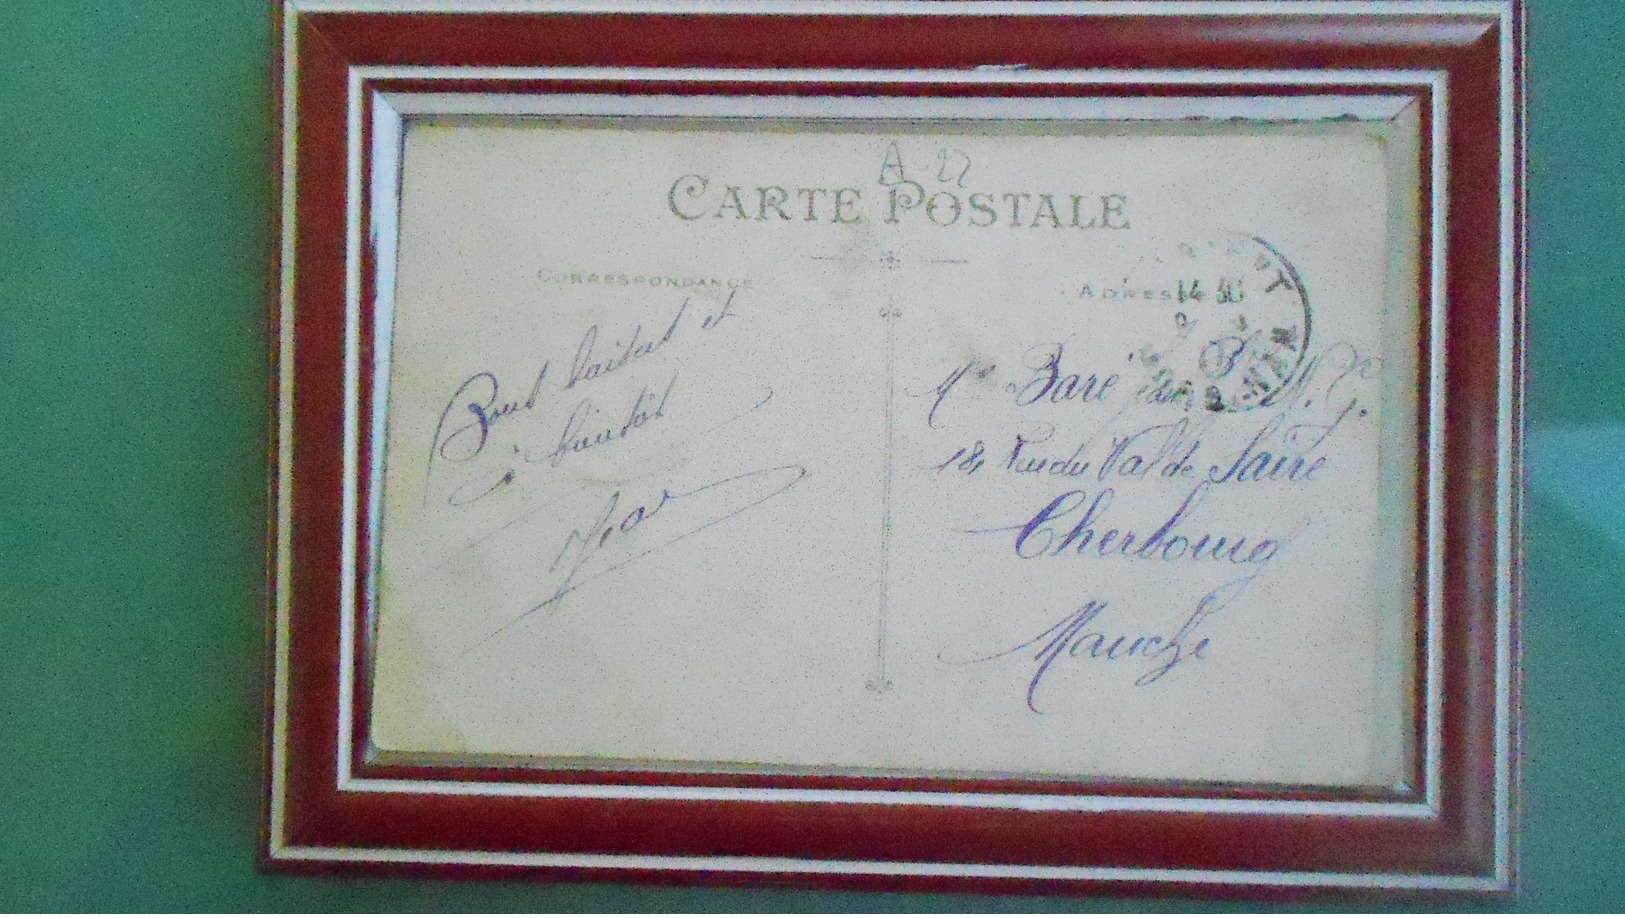 A 22
CARTE POSTALE
CORRESPONDANCE
ADRESSE
14 30
Bons baisers et
à bientôt
Jean
Bare
18, Rue du Val de Saire
Cherbourg
Manche